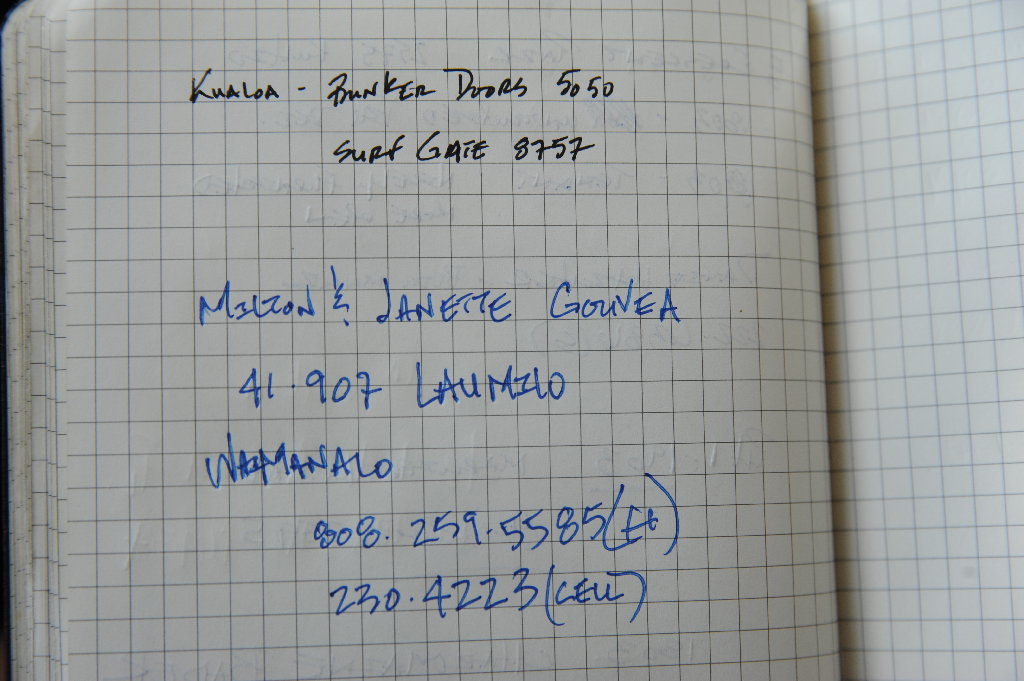 KUALOA - BUNKER DOORS 5050
SURF GATE 8757
MILTON & JANETTE GOUVEA
41.907 LAUMILO
WAIMANALO
808.259.5585
230.4223 (CELL)